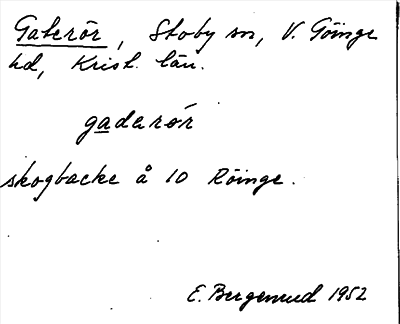 Gaterör, Stoby sn, V. Göinge
hd, Krist. län.
gaderör
skogbacke å 10 Röinge.
E. Bergemund 1952